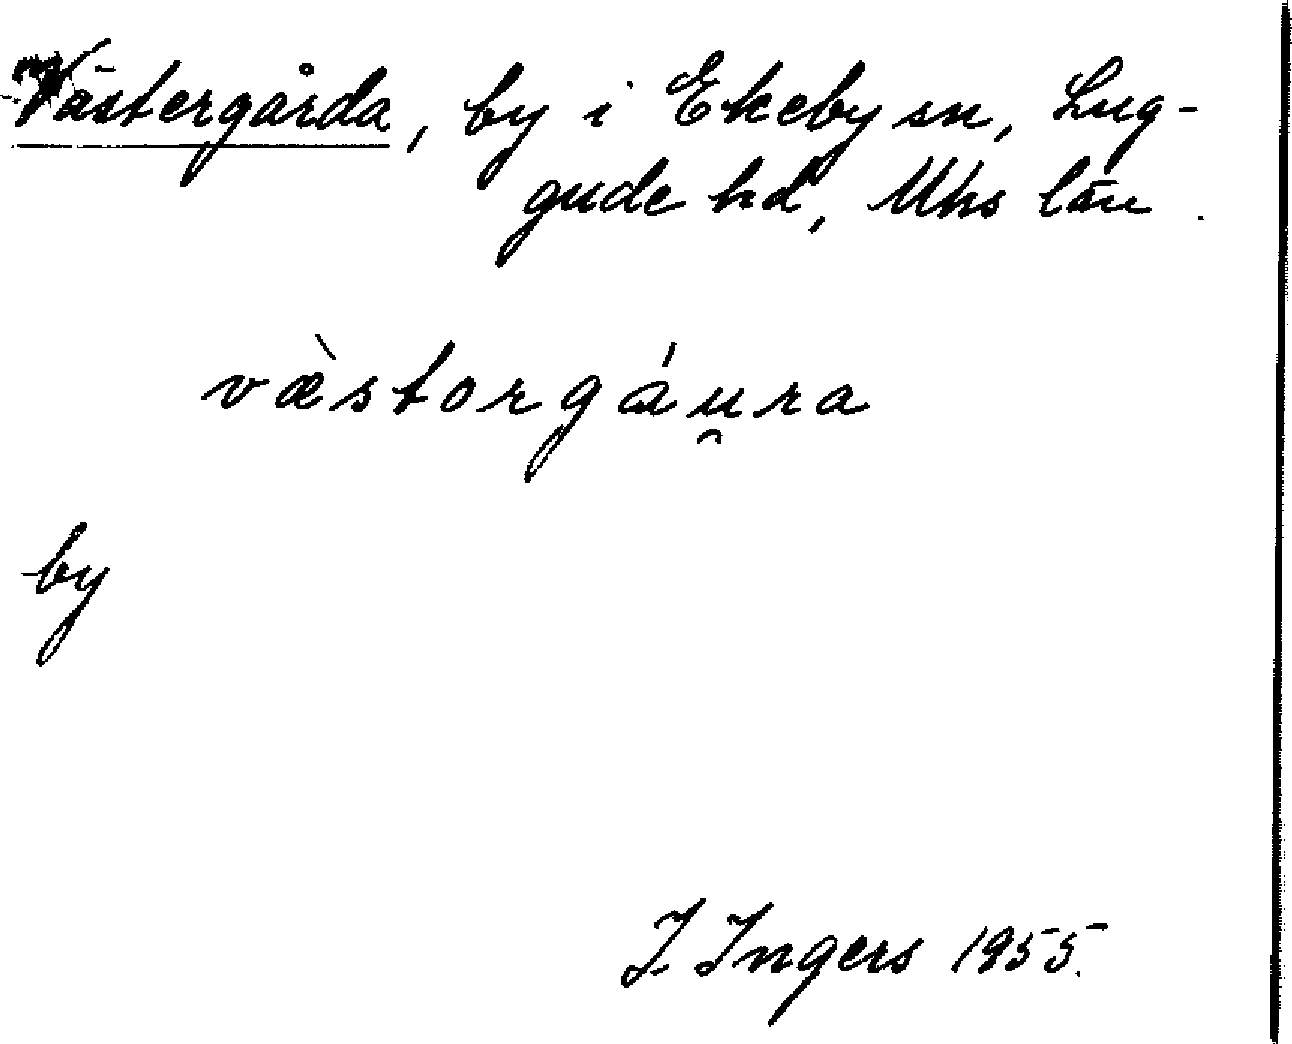 Västergårda, by i Ekeby sn, Lug-
gude hd, Mhs län.
væ̀storgáu̯ra
by
I. Ingers 1955.